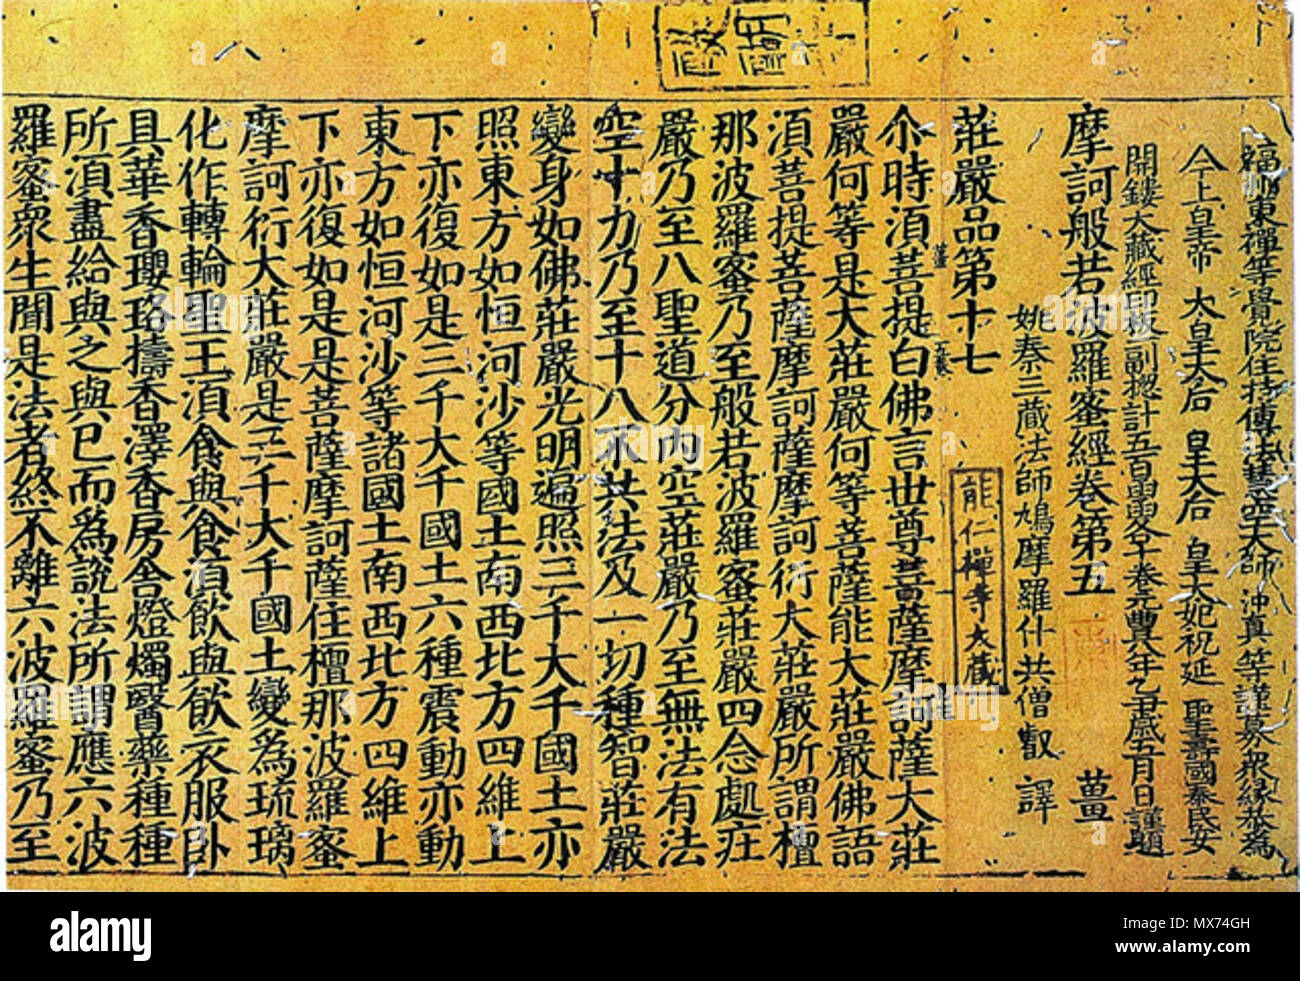 福州東禪等覺院住持傳法慧空大師沖真等謹募衆緣恭爲
今上皇帝 太皇太后 皇太后 皇太妃祝延 聖壽國泰民安
開鏤大藏經印板一副揔計五百函仍
元豐八年乙丑歲五月日謹題
摩訶般若波羅蜜經卷第五 薑
姚秦三藏法師鳩摩羅什共僧叡 譯
莊嚴品第十七
能仁禪寺大藏
尒時須菩提白佛言世尊菩薩摩訶薩大莊
嚴何等是大莊嚴何等菩薩能大莊嚴佛語
須菩提菩薩摩訶薩摩訶衍大莊嚴所謂檀
那波羅蜜乃至般若波羅蜜莊嚴四念處莊
嚴乃至八聖道分內空莊嚴乃至無法有法
空十力乃至十八不共法及一切種智莊嚴
變身如佛莊嚴光明遍照三千大千國土亦
照東方如恒河沙等國土南西北方四維上
下亦復如是三千大千國土六種震動亦動
東方如恒河沙等諸國土南西北方四維上
下亦復如是是菩薩摩訶薩住檀那波羅蜜
摩訶衍大莊嚴是三千大千國土變爲琉璃
化作轉輪聖王須食與食須飲與飲衣服臥
具華香瓔珞擣香澤香房舍燈燭醫藥種種
所須盡給與之與已而爲說法所謂應六波
羅蜜衆生聞是法者終不離六波羅蜜乃至
alamy
Image ID: MX74GH
www.alamy.com